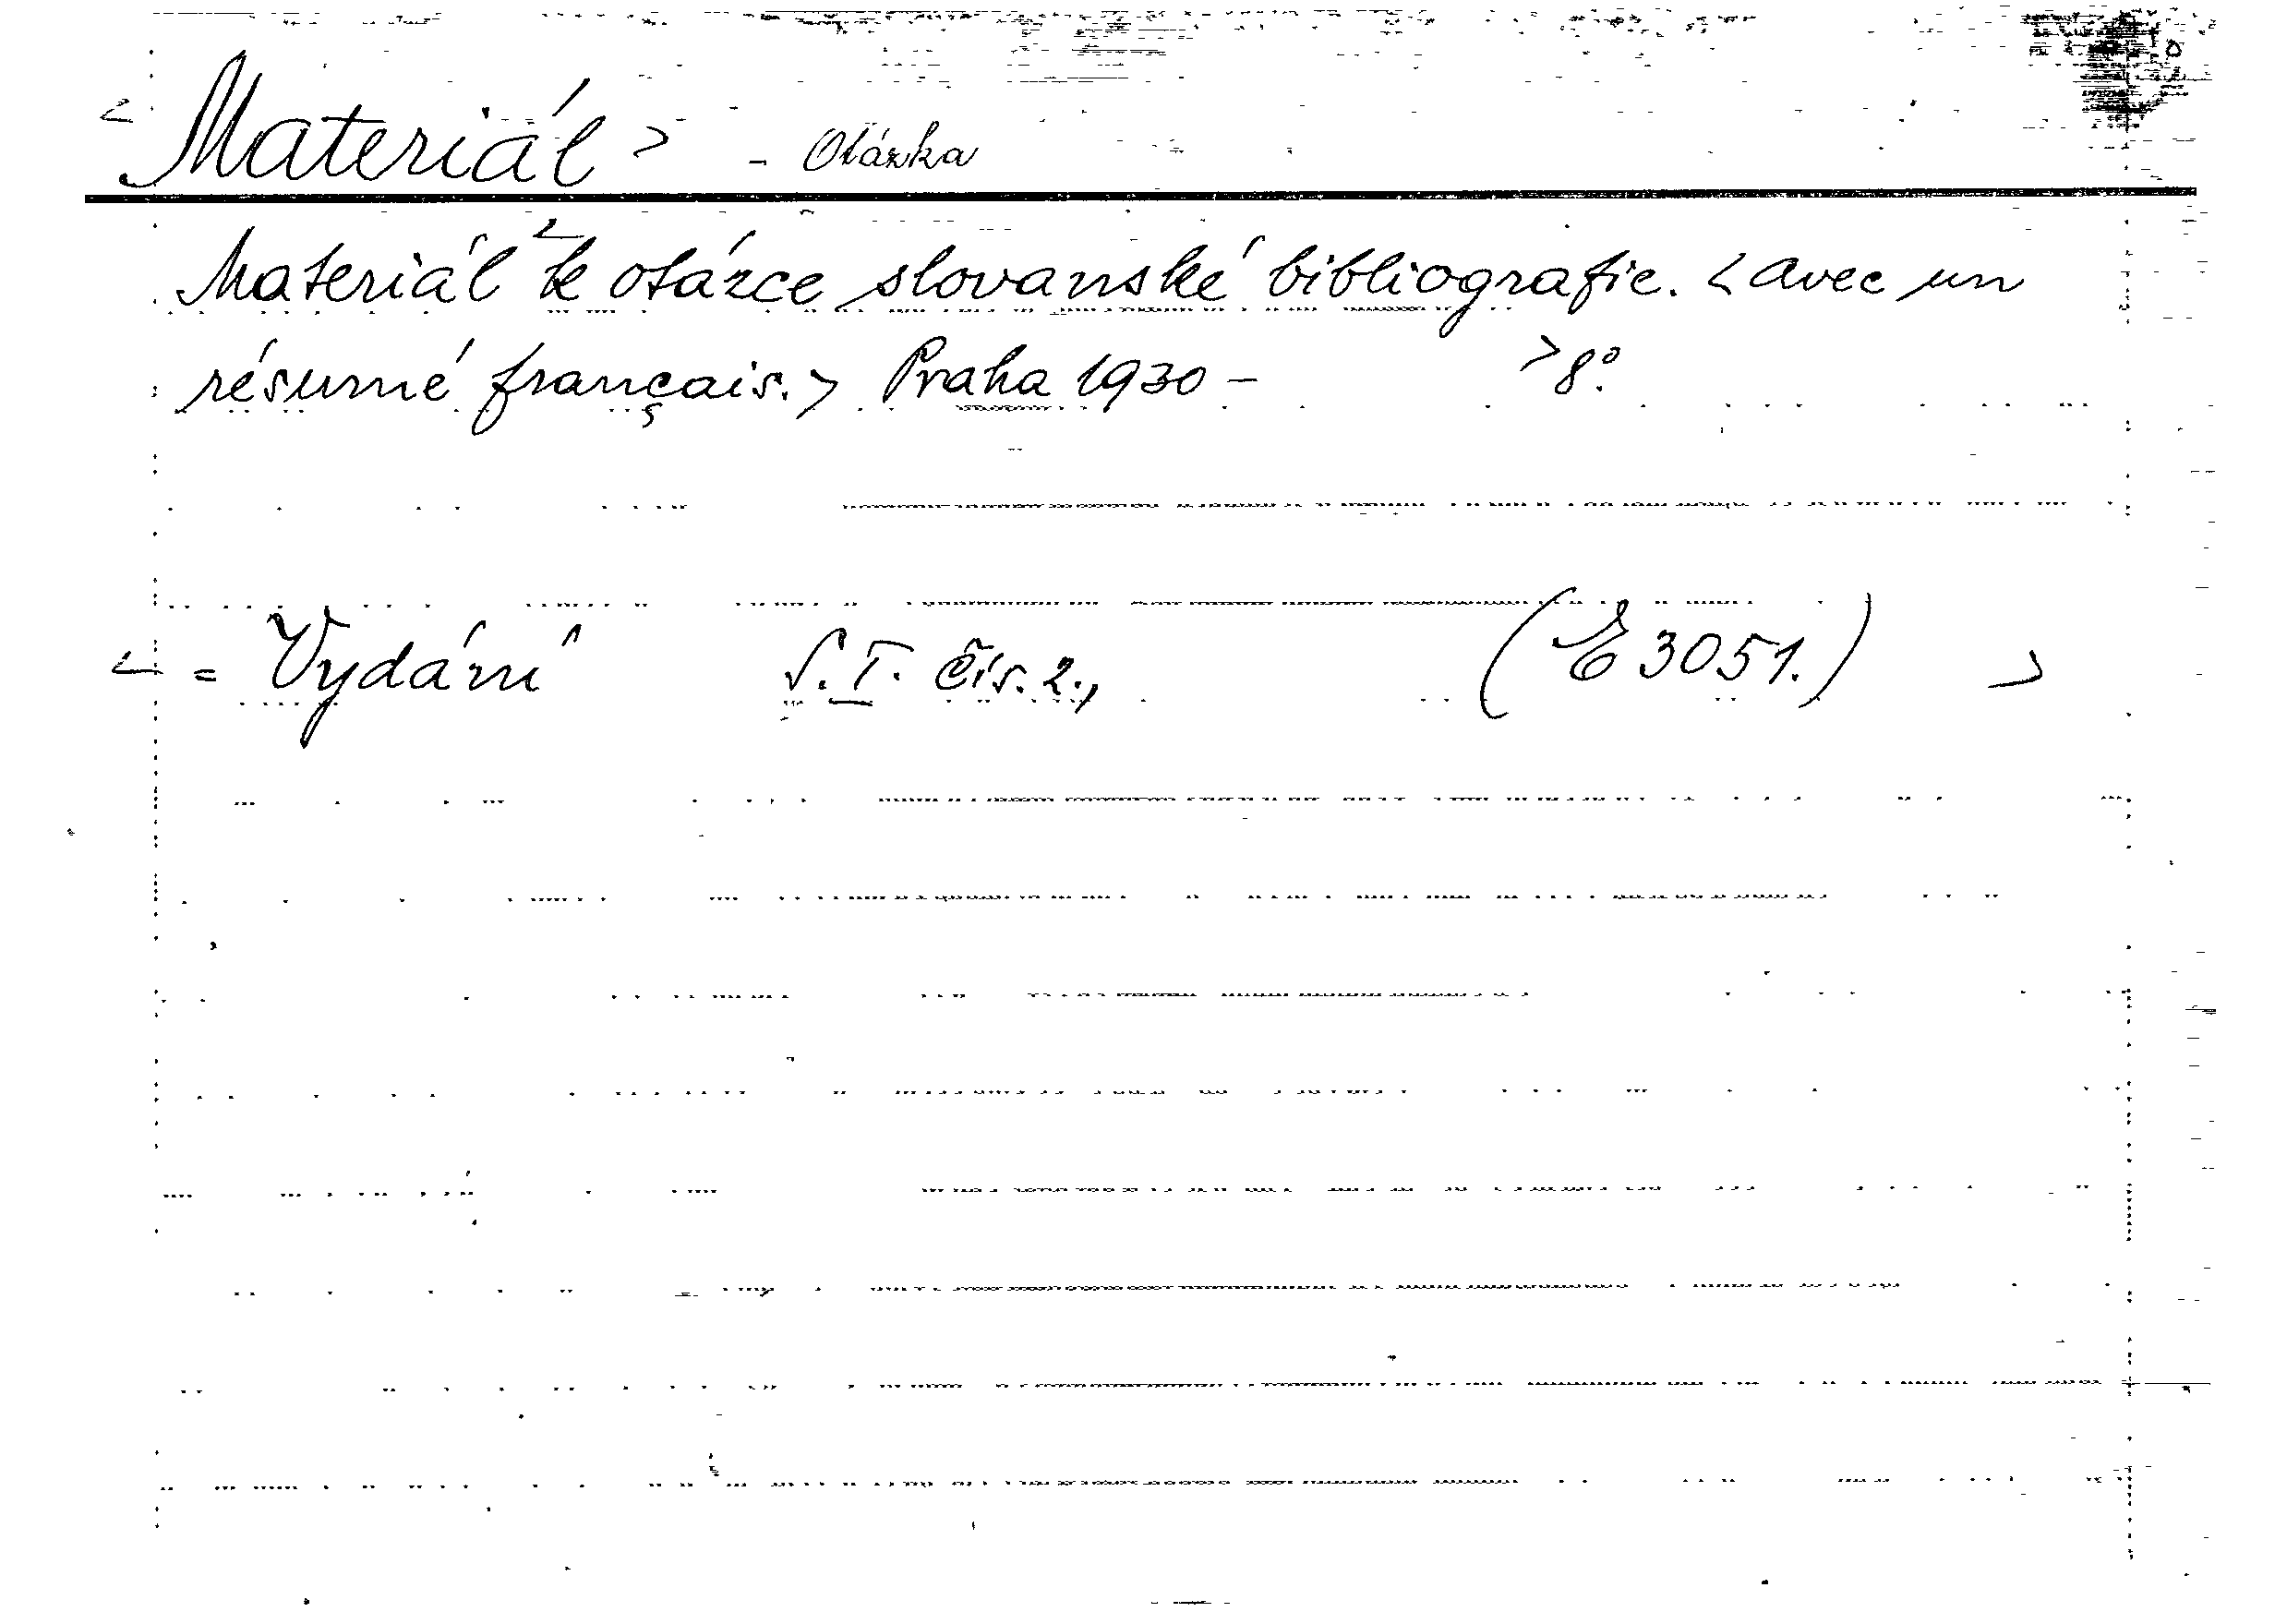 < Materiál > - Otázka
Materiál < k otázce slovanské bibliografie. < avec un
résumé français. > Praha 1930 - > 8º.
< = Vydání S. I. čís. 2., (E 3051.) >